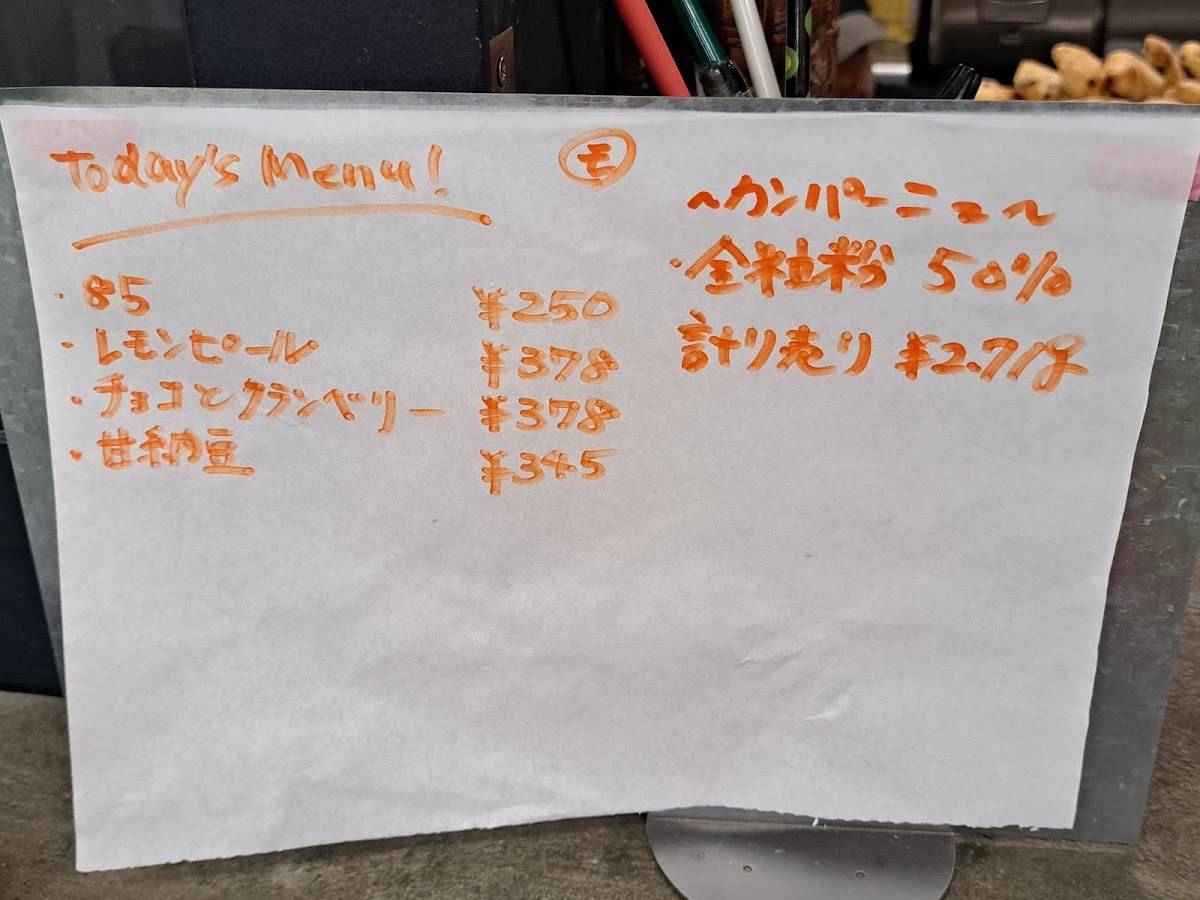 Today's Menu!
モ
・85 ¥250
・レモンピール ¥378
・チョコとクランベリー ¥378
・甘納豆 ¥345
~カンパーニュ~
・全粒粉 50%
計り売り ¥2.7/g